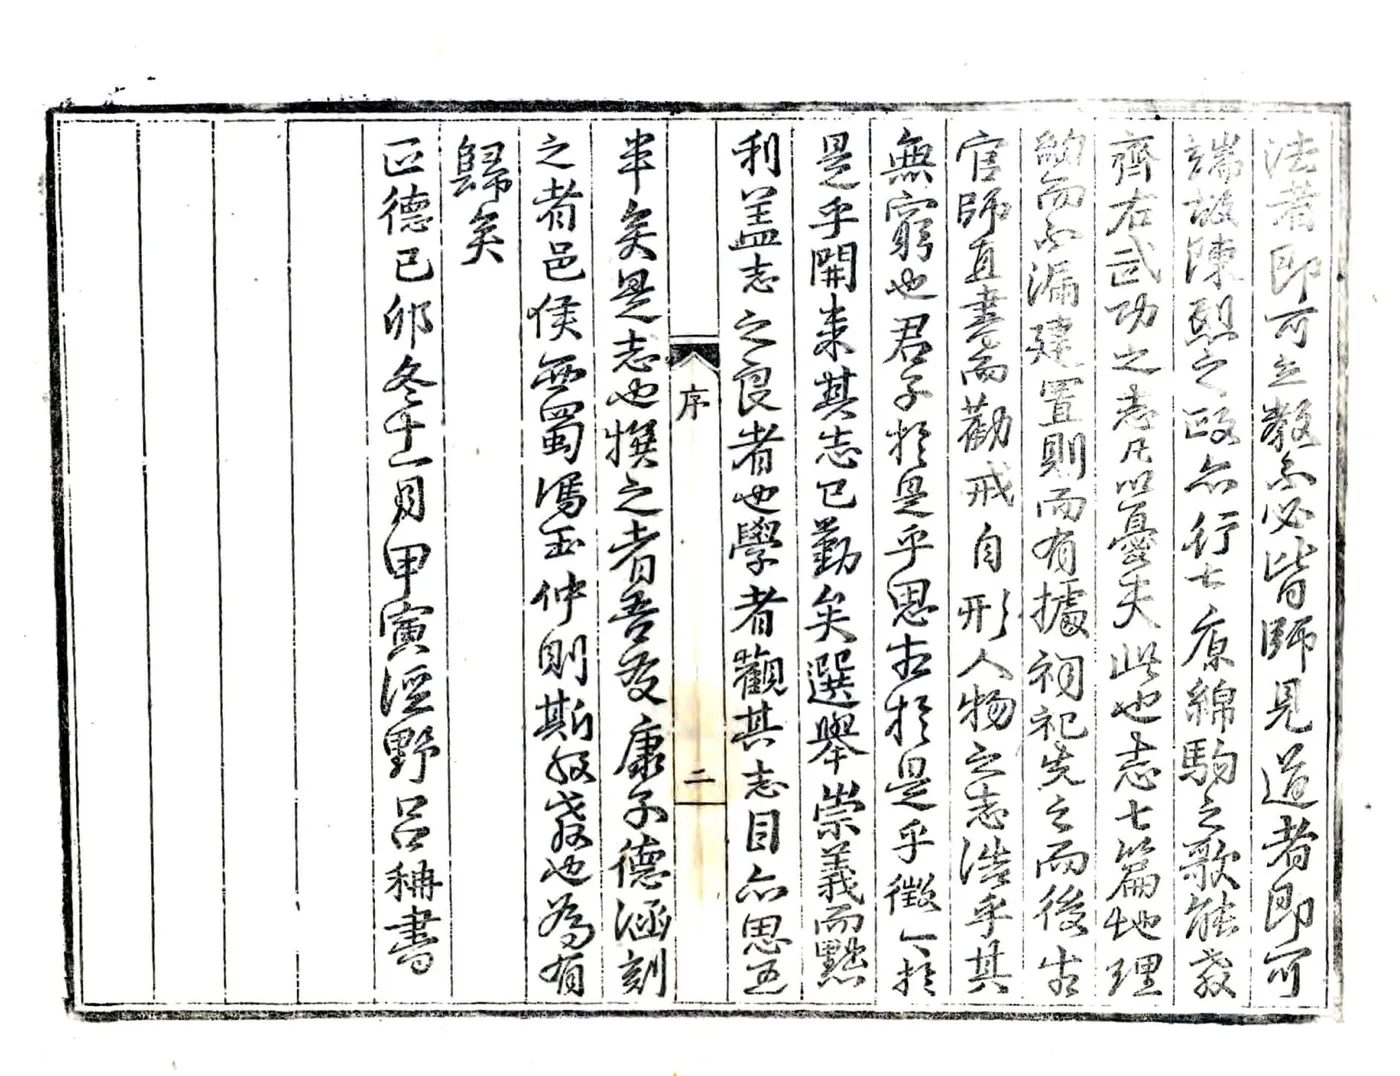 法者即可立教不必皆師見道者即可
端故陳烈之政亦行七原綿駒之歌能教
齊右武功之志凡以憂夫此也志七篇地理
約而不漏建置則而有據祠祀先之而後古
官師直書而勸戒自形人物之志浩乎其
無窮也君子於是乎思古於是乎徵人於
是乎開来其志已勤矣選舉崇義而黜
利盖志之良者也學者觀其志目亦思過
序
二
半矣是志也撰之者吾友康子德涵刻
之者邑侯西蜀馮玉仲則斯政教也為有
歸矣
正德己卯冬十一月甲寅涇野呂柟書